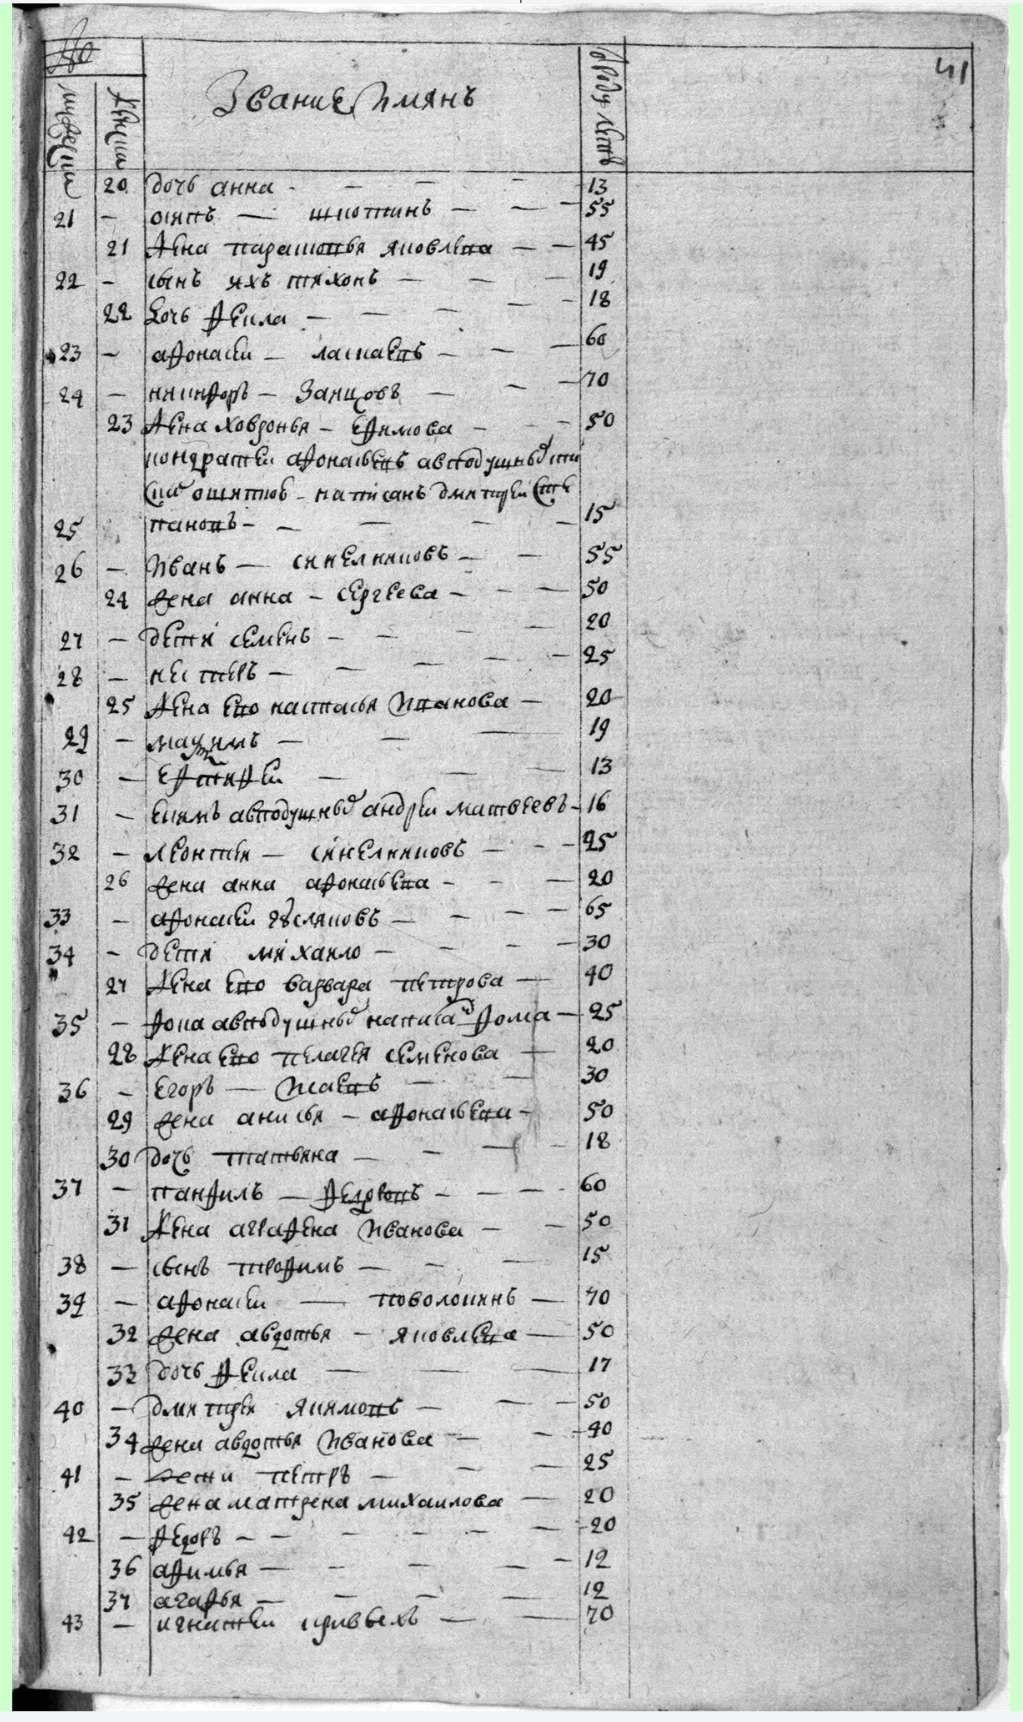 № 41
мужеска женска Званиє имянъ отроду летъ
20 дочь анна 13
21 - осипъ 55
21 жена парасковья яковлева 45
22 - сынъ ихъ тихонъ 19
22 дочь фекла 18
23 - афонасеи 60
24 - никифоръ - Заицовъ 70
23 жена ховронья - ефимова 50
кондратеи афонасьевъ
написанъ дмитреи сте
25 пановъ - 15
26 - иванъ - синелниковъ 55
24 жена анна - сергеева - 50
27 - дети семенъ - 20
28 - нестеръ - 25
25 жена ево настасья иванова - 20
29 - мауимъ - 19
30 - 13
31 - екимъ вподушнъ андреи матвеевъ - 16
32 - леонтеи - синелниковъ 25
26 жена анна афонасьева - 20
33 - афонасеи 65
34 - дети михаило - 30
27 жена ево варвара петрова 40
35 - фока вподушнъ написа фома - 25
28 жена ево пелагея семенова 20
36 - егоръ - 30
29 жена анисья - афонасьева - 50
30 дочь татьяна 18
37 - панфилъ - 60
31 жена аграфена иванова 50
38 - сынъ трофимъ 15
39 - афонасеи 70
32 жена авдотья - яковлева 50
33 дочь фекла 17
40 - дмитреи якимовъ 50
34 жена авдотья иванова 40
41 - дети петръ 25
35 жена матрена михаилова 20
42 - федоръ - 20
36 афимья 12
37 агафья 12
43 - игнатеи 70